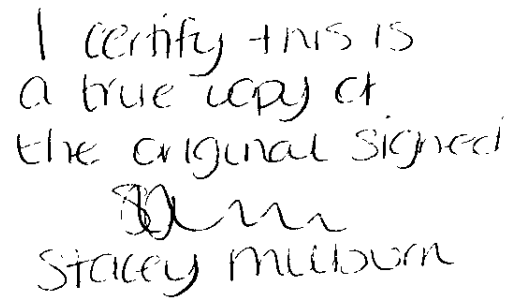 I certify this is
a true copy of
the original signed
Stacey Milburn